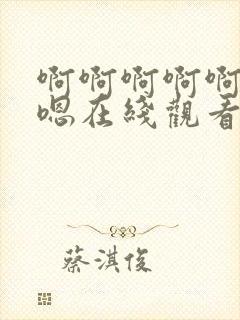 啊啊啊啊啊
嗯在綫觀看
蔡淇俊